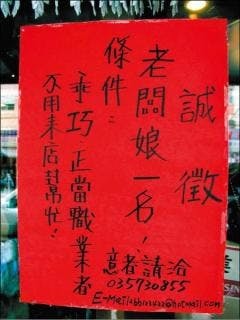 誠徵
老闆娘一名！
條件：
乖巧．正當職業者
不用來店幫忙！
意者請洽
035730855